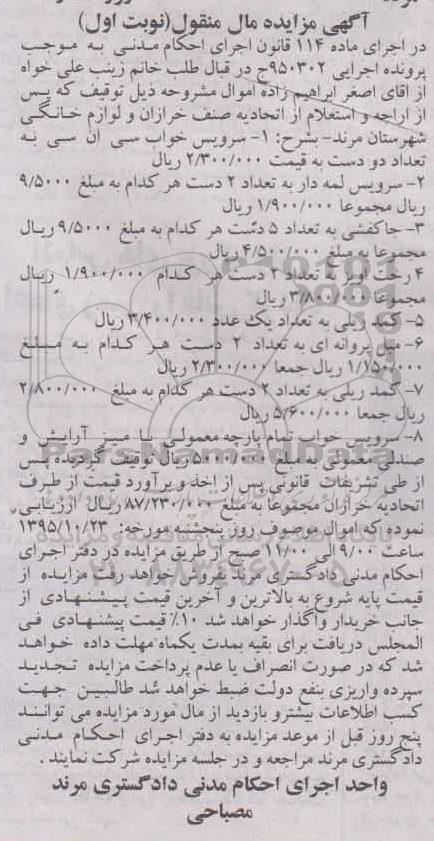 آگهی مزایده مال منقول(نوبت اول)
در اجرای ماده ۱۱۴ قانون اجرای احکام مدنی به موجب
پرونده اجرایی ۹۵۰۳۰۲ج در قبال طلب خانم زینب علی خواه
از اقای اصغر ابراهیم زاده اموال مشروحه ذیل توقیف که پس
از اراجه و استعلام از اتحادیه صنف خرازان و لوازم خانگی
شهرستان مرند- بشرح: ۱- سرویس خواب سی ان سی به
تعداد دو دست به قیمت ۲/۳۰۰/۰۰۰ ریال
۲- سرویس لمه دار به تعداد ۲ دست هر کدام به مبلغ ۹/۵۰۰۰
ریال مجموعا ۱/۹۰۰/۰۰۰ ریال
۳- جاکفشی به تعداد ۵ دست هر کدام به مبلغ ۹/۵۰۰۰ ریال
مجموعا به مبلغ ۴/۵۰۰/۰۰۰ ریال
۴ رخت آویز به تعداد ۲ دست هر کدام ۱/۹۰۰/۰۰۰ ریال
مجموعا ۳/۸۰۰/۰۰۰ ریال
۵- کمد ریلی به تعداد یک عدد ۳/۴۰۰/۰۰۰ ریال
۶- مبل پروانه ای به تعداد ۲ دست هر کدام به مبلغ
۱/۱۵۰/۰۰۰ ریال جمعا ۲/۳۰۰/۰۰۰ ریال
۷- کمد ریلی به تعداد ۲ دست هر کدام به مبلغ ۲/۸۰۰/۰۰۰
ریال جمعا ۵/۶۰۰/۰۰۰ ریال
۸- سرویس خواب تمام پارچه معمولی با میز آرایش و
صندلی معمولی به مبلغ ریال توقیف گردیده پس
از طی تشریفات قانونی پس از اخذ و برآورد قیمت از طرف
اتحادیه خرازان مجموعا به مبلغ ۸۷/۲۳۰/۰۰۰ ریال ارزیابی
نموده که اموال موصوف روز پنجشنبه مورخه: ۱۳۹۵/۱۰/۲۳
ساعت ۹/۰۰ الی ۱۱/۰۰ صبح از طریق مزایده در دفتر اجرای
احکام مدنی دادگستری مرند بفروش خواهد رفت مزایده از
قیمت پایه شروع به بالاترین و آخرین قیمت پیشنهادی از
جانب خریدار واگذار خواهد شد ۱۰٪ قیمت پیشنهادی فی
المجلس دریافت برای بقیه بمدت یکماه مهلت داده خواهد
شد که در صورت انصراف یا عدم پرداخت مزایده تجدید
سپرده واریزی بنفع دولت ضبط خواهد شد طالبین جهت
کسب اطلاعات بیشترو بازدید از مال مورد مزایده می توانند
پنج روز قبل از موعد مزایده به دفتر اجرای احکام مدنی
دادگستری مرند مراجعه و در جلسه مزایده شرکت نمایند .
واحد اجرای احکام مدنی دادگستری مرند
مصباحی
ParsNamadData